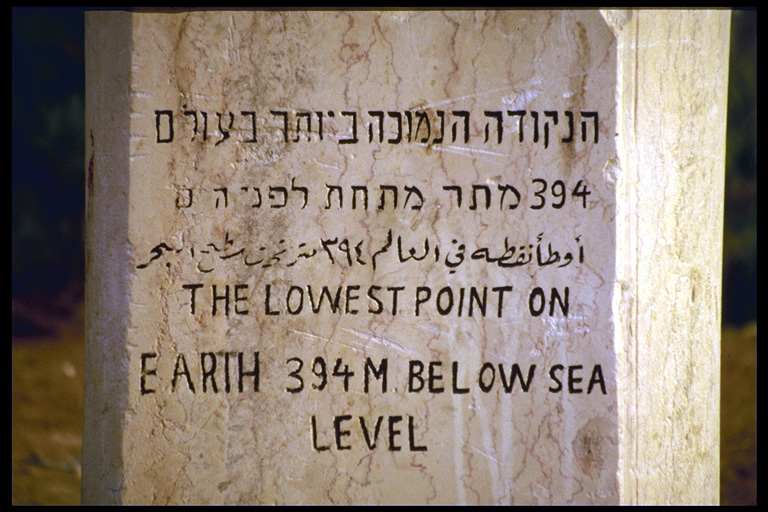 הנקודה הנמוכה ביותר בעולם
394 מתר מתחת לפני הים
أوطأ نقطه في العالم ٣٩٤ متر تحت سطح البحر
THE LOWEST POINT ON
EARTH 394 M. BELOW SEA
LEVEL